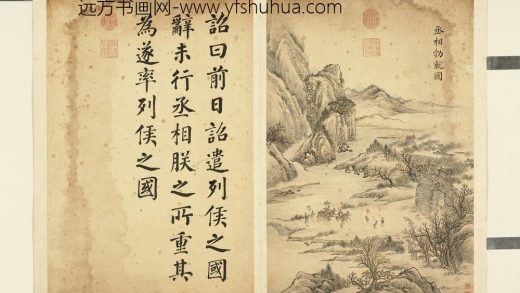 远方书画网-www.yfshuhua.com
丞相勃就國
詔曰前日詔遣列侯之國
辭未行丞相朕之所重其
為遂率列侯之國